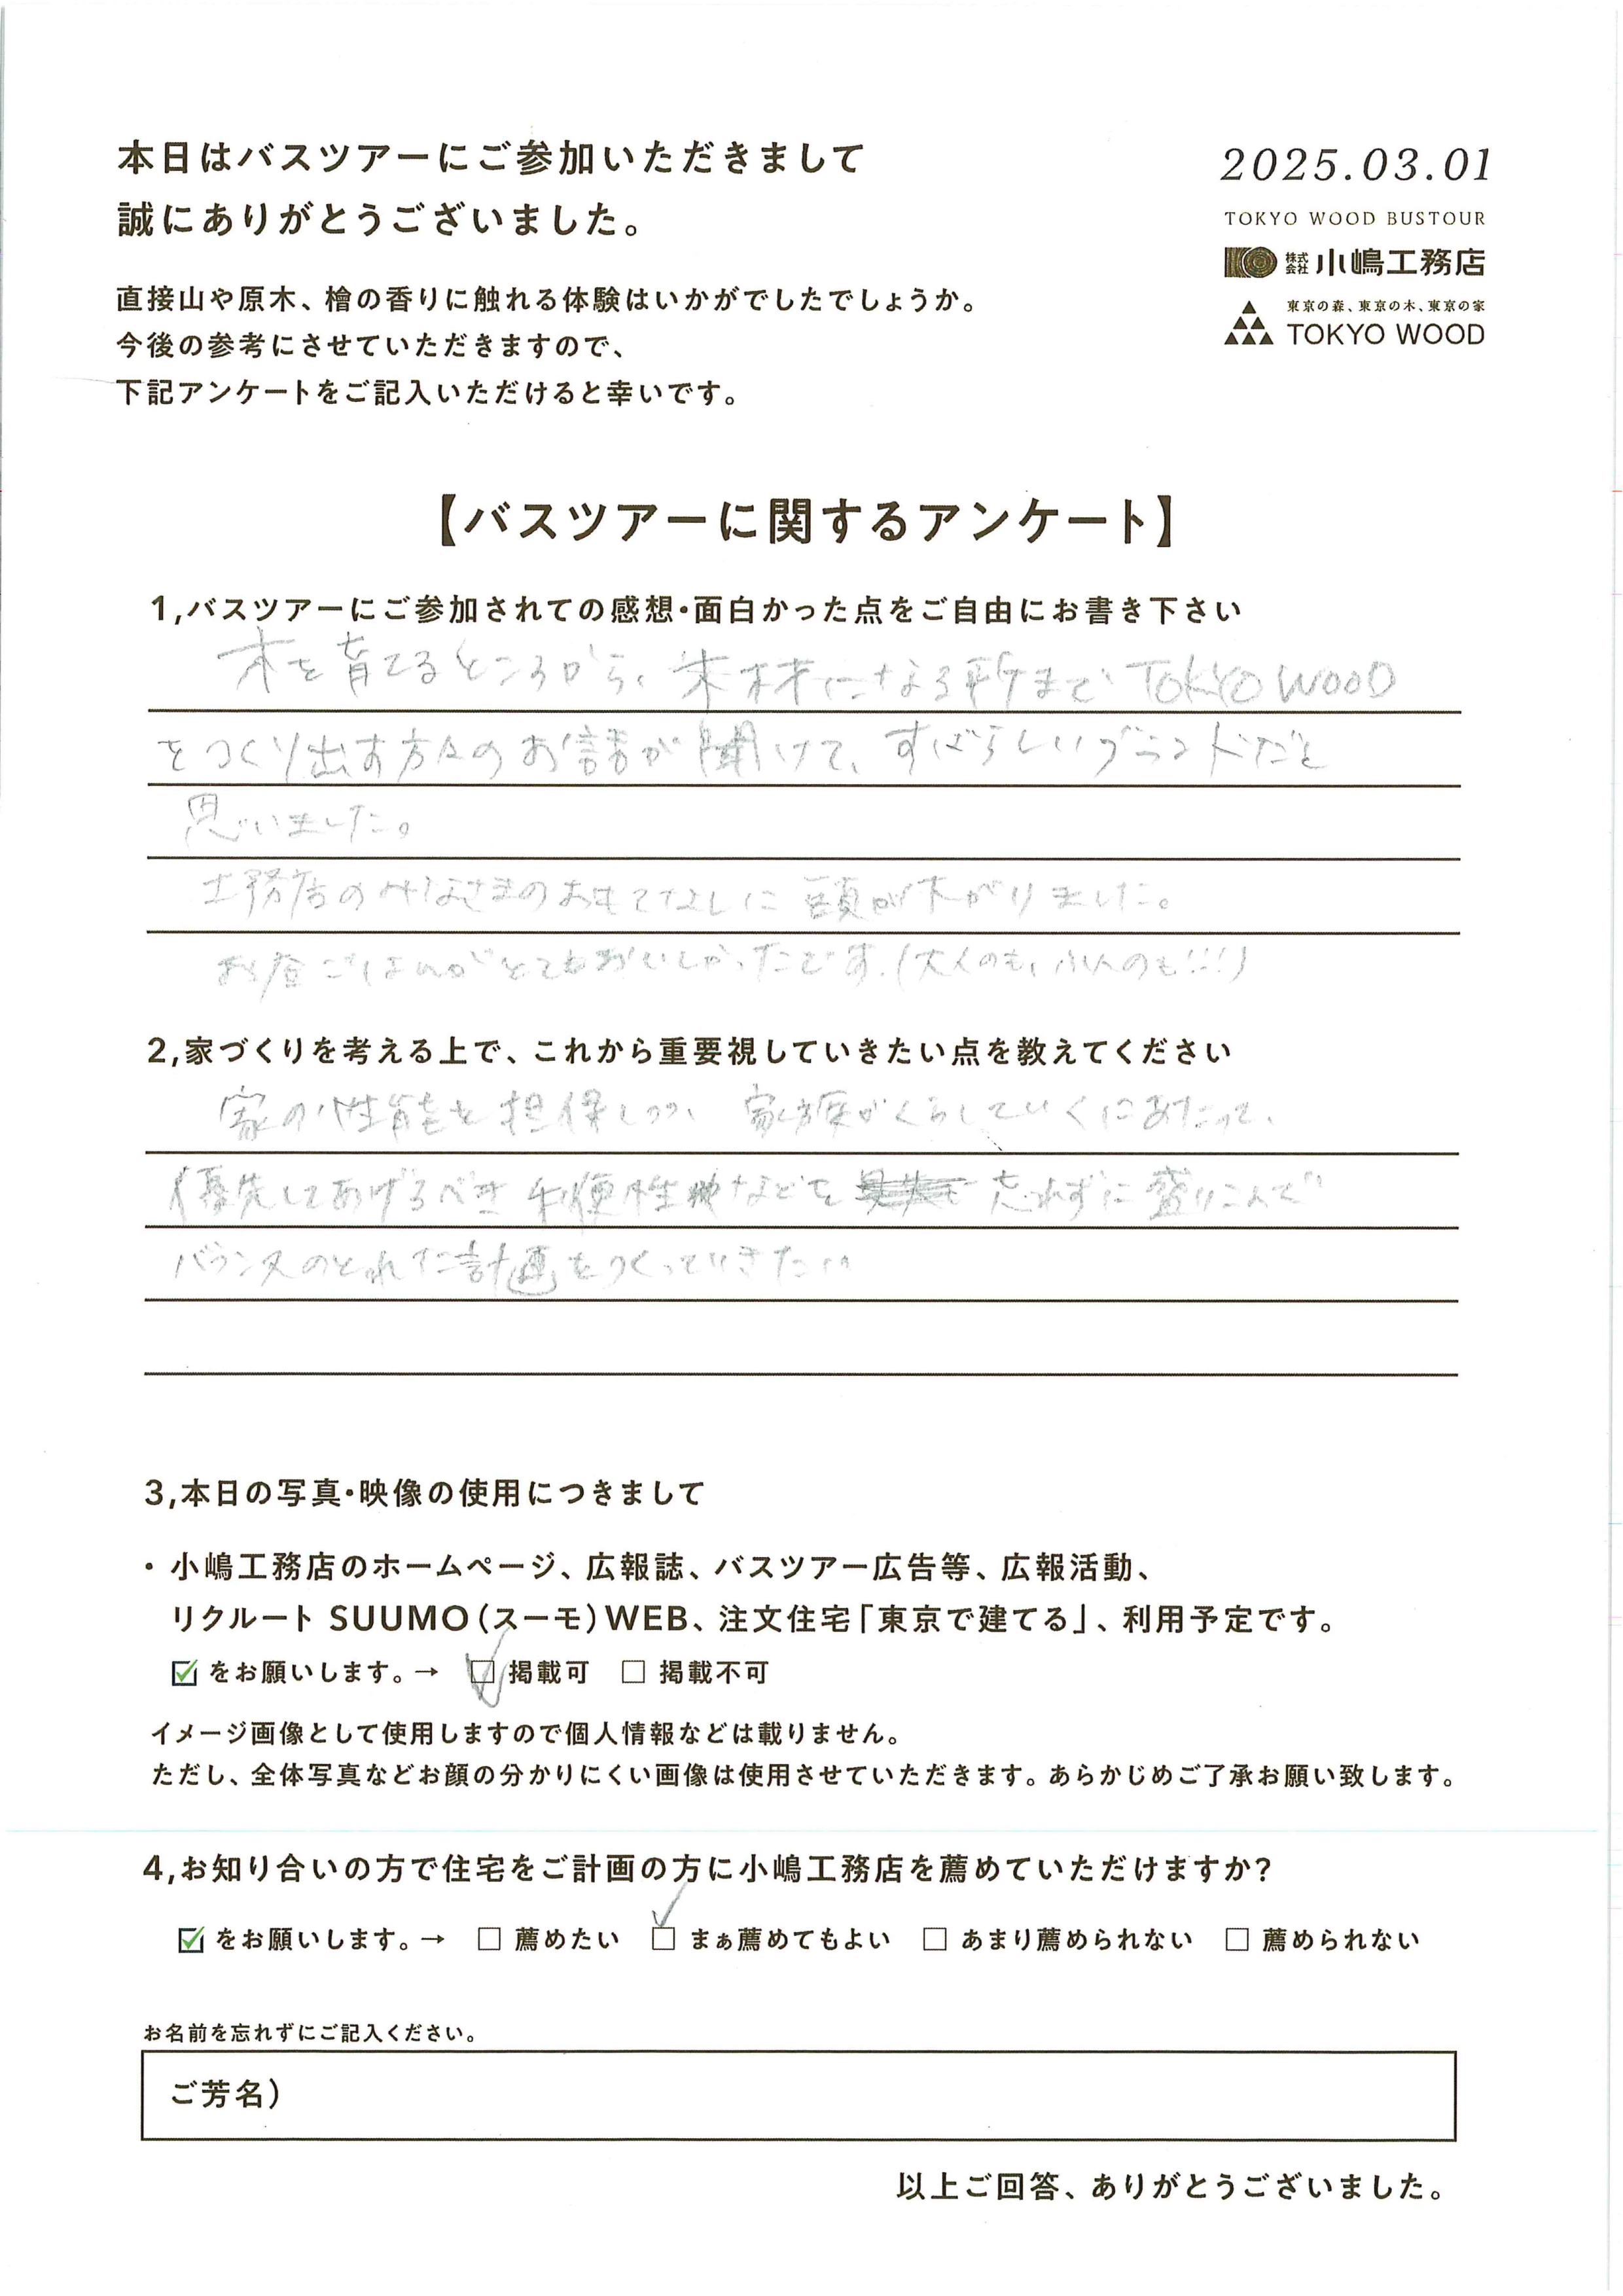 本日はバスツアーにご参加いただきまして
誠にありがとうございました。
2025.03.01
TOKYO WOOD BUSTOUR
株式会社 小嶋工務店
東京の森、東京の木、東京の家
TOKYO WOOD
直接山や原木、檜の香りに触れる体験はいかがでしたでしょうか。
今後の参考にさせていただきますので、
下記アンケートをご記入いただけると幸いです。
【バスツアーに関するアンケート】
1,バスツアーにご参加されての感想・面白かった点をご自由にお書き下さい
木を育てるところから、木材になる所までTOKYO WOOD
をつくり出す方々のお話が聞けて、すばらしいブランドだと
思いました。
工務店のみなさまのおもてなしに頭が下がりました。
お昼ごはんがとてもおいしかったです。(大人のも、小人のも!!!)
2,家づくりを考える上で、これから重要視していきたい点を教えてください
家の性能を担保しつつ、家族がくらしていくにあたって、
優先してあげるべき利便性などを忘れずに盛りこんで
バランスのとれた計画をつくっていきたい
3,本日の写真・映像の使用につきまして
・小嶋工務店のホームページ、広報誌、バスツアー広告等、広報活動、
リクルート SUUMO(スーモ)WEB、注文住宅「東京で建てる」、利用予定です。
☑をお願いします。→ ☑ 掲載可 □ 掲載不可
イメージ画像として使用しますので個人情報などは載りません。
ただし、全体写真などお顔の分かりにくい画像は使用させていただきます。あらかじめご了承お願い致します。
4,お知り合いの方で住宅をご計画の方に小嶋工務店を薦めていただけますか?
☑をお願いします。→ □ 薦めたい ☑ まぁ薦めてもよい □ あまり薦められない □ 薦められない
お名前を忘れずにご記入ください。
ご芳名)
以上ご回答、ありがとうございました。